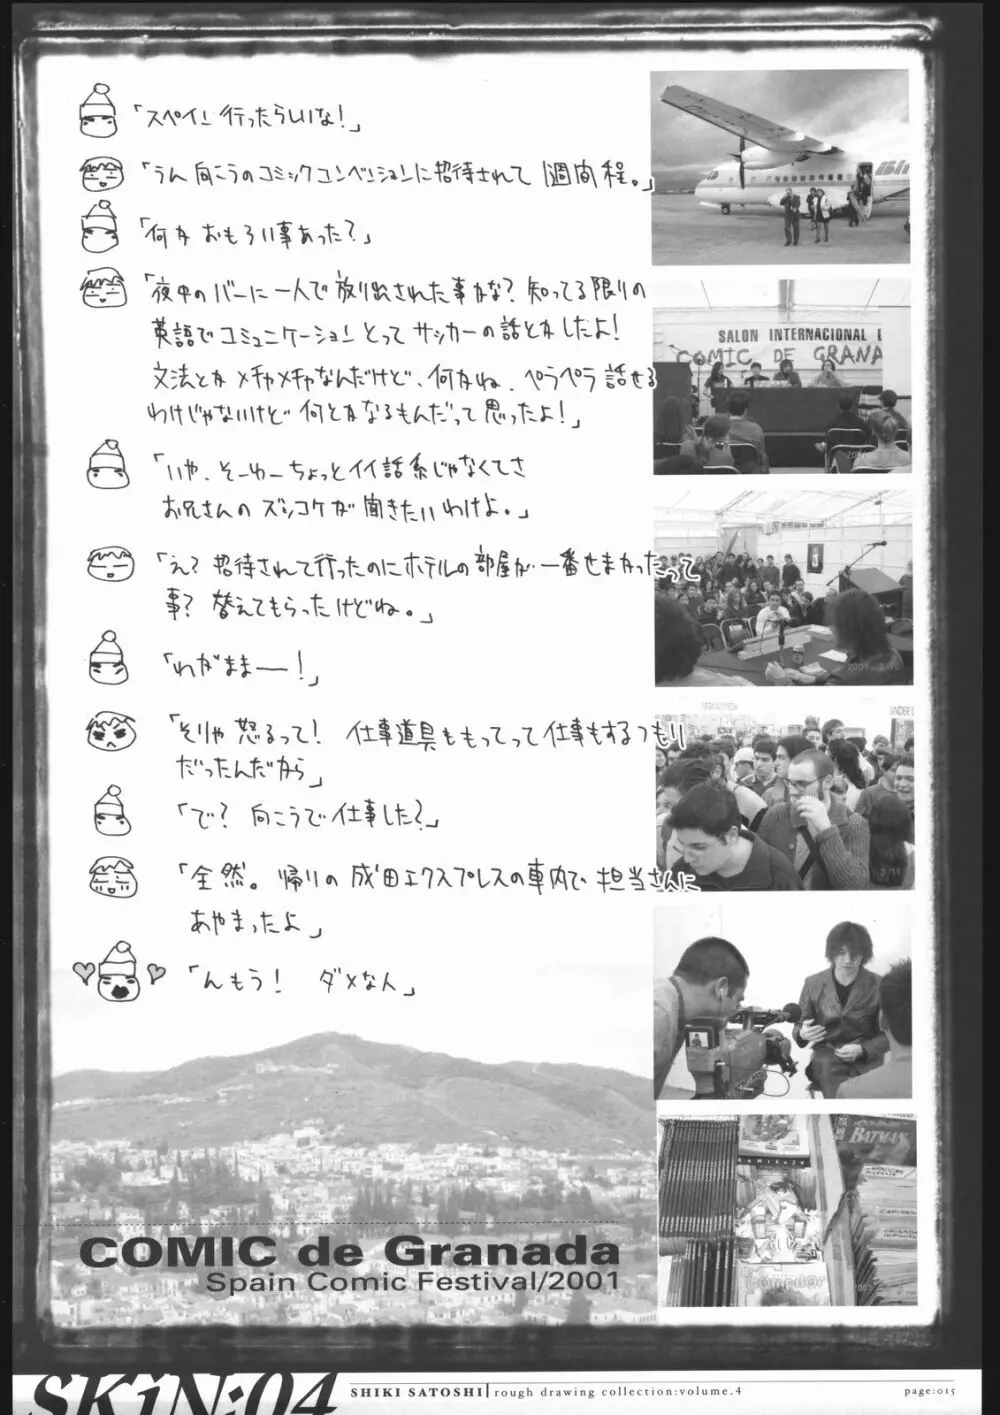 「スペイン行ったらしいな!」
「うん向こうのコミックコンベンションに招待されて1週間程。」
「何かおもろい事あった?」
「夜中のバーに一人で放り出された事かな?知ってる限りの
英語でコミュニケーションとってサッカーの話とかしたよ!
文法とかメチャメチャなんだけど、何かね、ペラペラ話せる
わけじゃないけど何とかなるもんだって思ったよ!」
「いや、そーゆーちょっとイイ話系じゃなくてさ
お兄さんのズッコケが聞きたいわけよ。」
「え?招待されて行ったのにホテルの部屋が一番せまかったって
事?替えてもらったけどね。」
「わがままー!」
「そりゃ怒るって! 仕事道具ももってって仕事もするつもり
だったんだから」
「で? 向こうで仕事した?」
「全然。帰りの成田エクスプレスの車内で担当さんに
あやまったよ」
「んもう! ダメな人」
SALON INTERNACIONAL
COMIC DE GRANA
UNDER
2001 3/10
3/11
KAMIKAZE
BATMAN
COMIC de Granada
Spain Comic Festival/2001
SKiN:04
SHIKI SATOSHI | rough drawing collection:volume.4
page:015